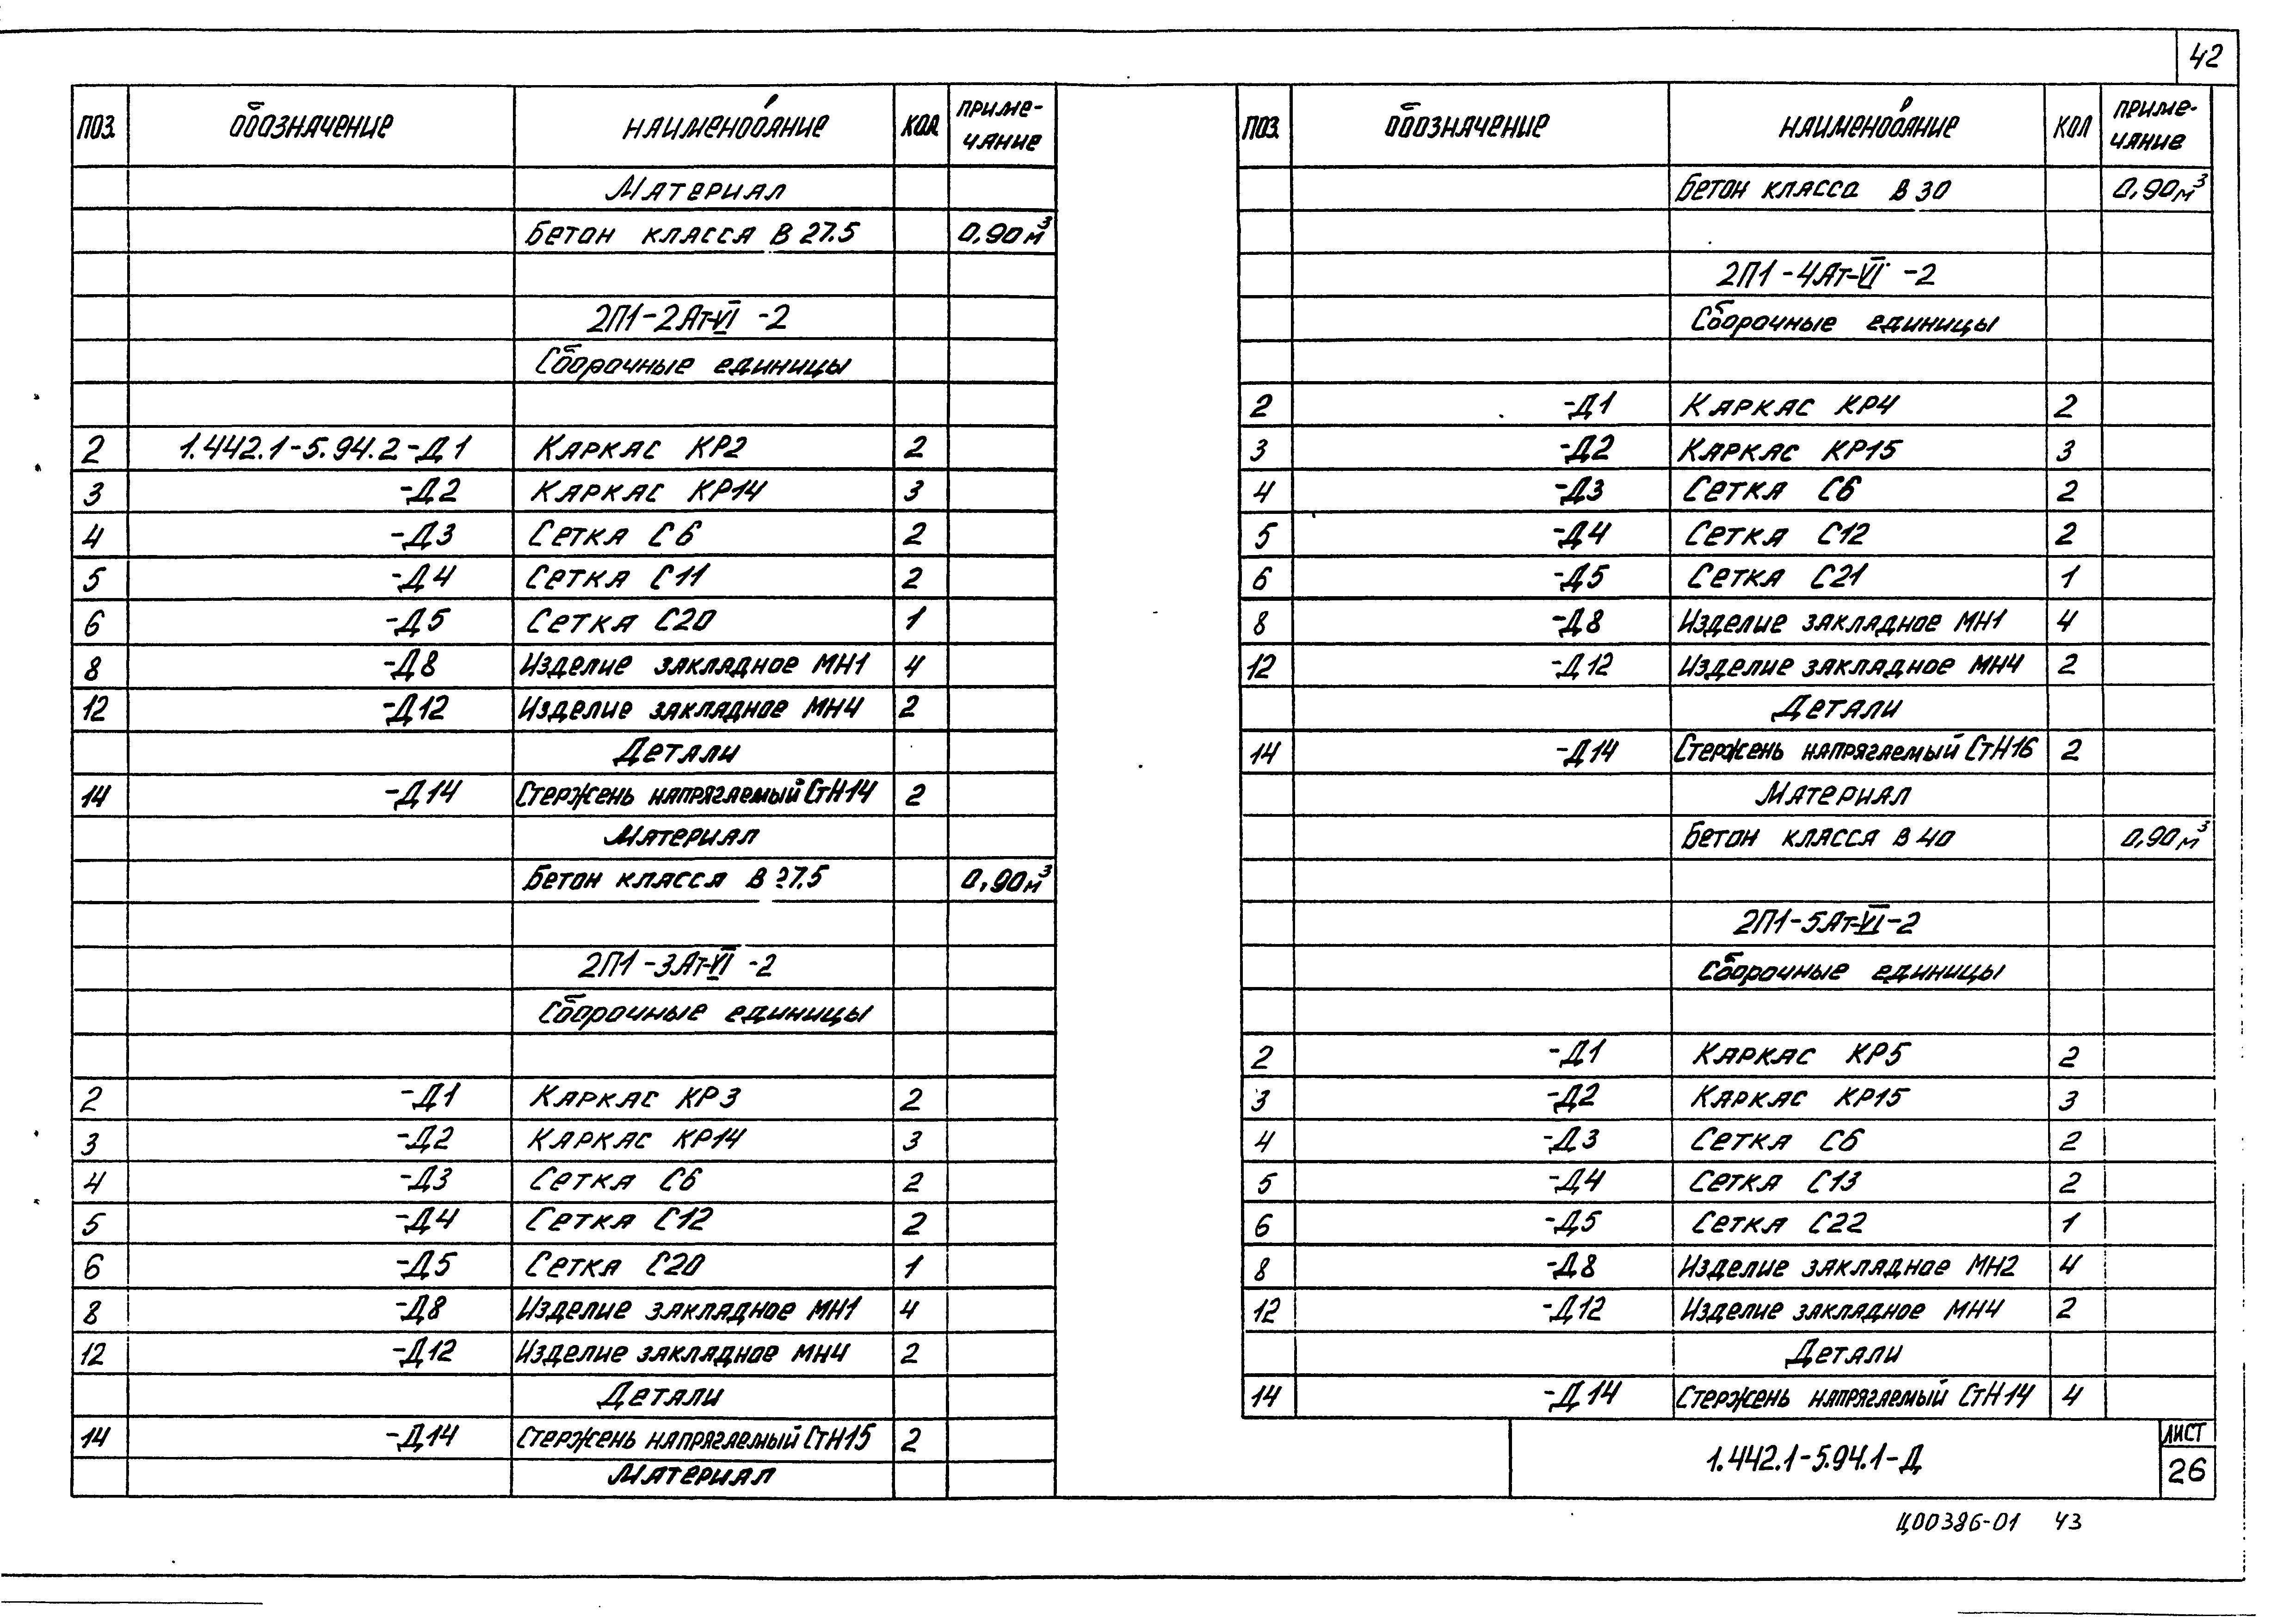 42
ПОЗ. ОБОЗНАЧЕНИЕ НАИМЕНОВАНИЕ КОЛ ПРИМЕ-
ЧАНИЕ
Материал
Бетон класса В 27.5 0,90м³
2П1-2Ат-VI -2
Сборочные единицы
2 1.442.1-5.94.2-Д1 Каркас КР2 2
3 -Д2 Каркас КР14 3
4 -Д3 Сетка С6 2
5 -Д4 Сетка С11 2
6 -Д5 Сетка С20 1
8 -Д8 Изделие закладное МН1 4
12 -Д12 Изделие закладное МН4 2
Детали
14 -Д14 Стержень напрягаемый СтН14 2
Материал
Бетон класса В 27.5 0,90м³
2П1-3Ат-VI -2
Сборочные единицы
2 -Д1 Каркас КР3 2
3 -Д2 Каркас КР14 3
4 -Д3 Сетка С6 2
5 -Д4 Сетка С12 2
6 -Д5 Сетка С20 1
8 -Д8 Изделие закладное МН1 4
12 -Д12 Изделие закладное МН4 2
Детали
14 -Д14 Стержень напрягаемый СтН15 2
Материал
ПОЗ. ОБОЗНАЧЕНИЕ НАИМЕНОВАНИЕ КОЛ ПРИМЕ-
ЧАНИЕ
Бетон класса В 30 0,90м³
2П1-4Ат-VI -2
Сборочные единицы
2 -Д1 Каркас КР4 2
3 -Д2 Каркас КР15 3
4 -Д3 Сетка С6 2
5 -Д4 Сетка С12 2
6 -Д5 Сетка С21 1
8 -Д8 Изделие закладное МН1 4
12 -Д12 Изделие закладное МН4 2
Детали
14 -Д14 Стержень напрягаемый СтН16 2
Материал
Бетон класса В 40 0,90м³
2П1-5Ат-VI-2
Сборочные единицы
2 -Д1 Каркас КР5 2
3 -Д2 Каркас КР15 3
4 -Д3 Сетка С6 2
5 -Д4 Сетка С13 2
6 -Д5 Сетка С22 1
8 -Д8 Изделие закладное МН2 4
12 -Д12 Изделие закладное МН4 2
Детали
14 -Д14 Стержень напрягаемый СтН14 4
1.442.1-5.94.1-Д
ЛИСТ
26
Ц00386-01 43